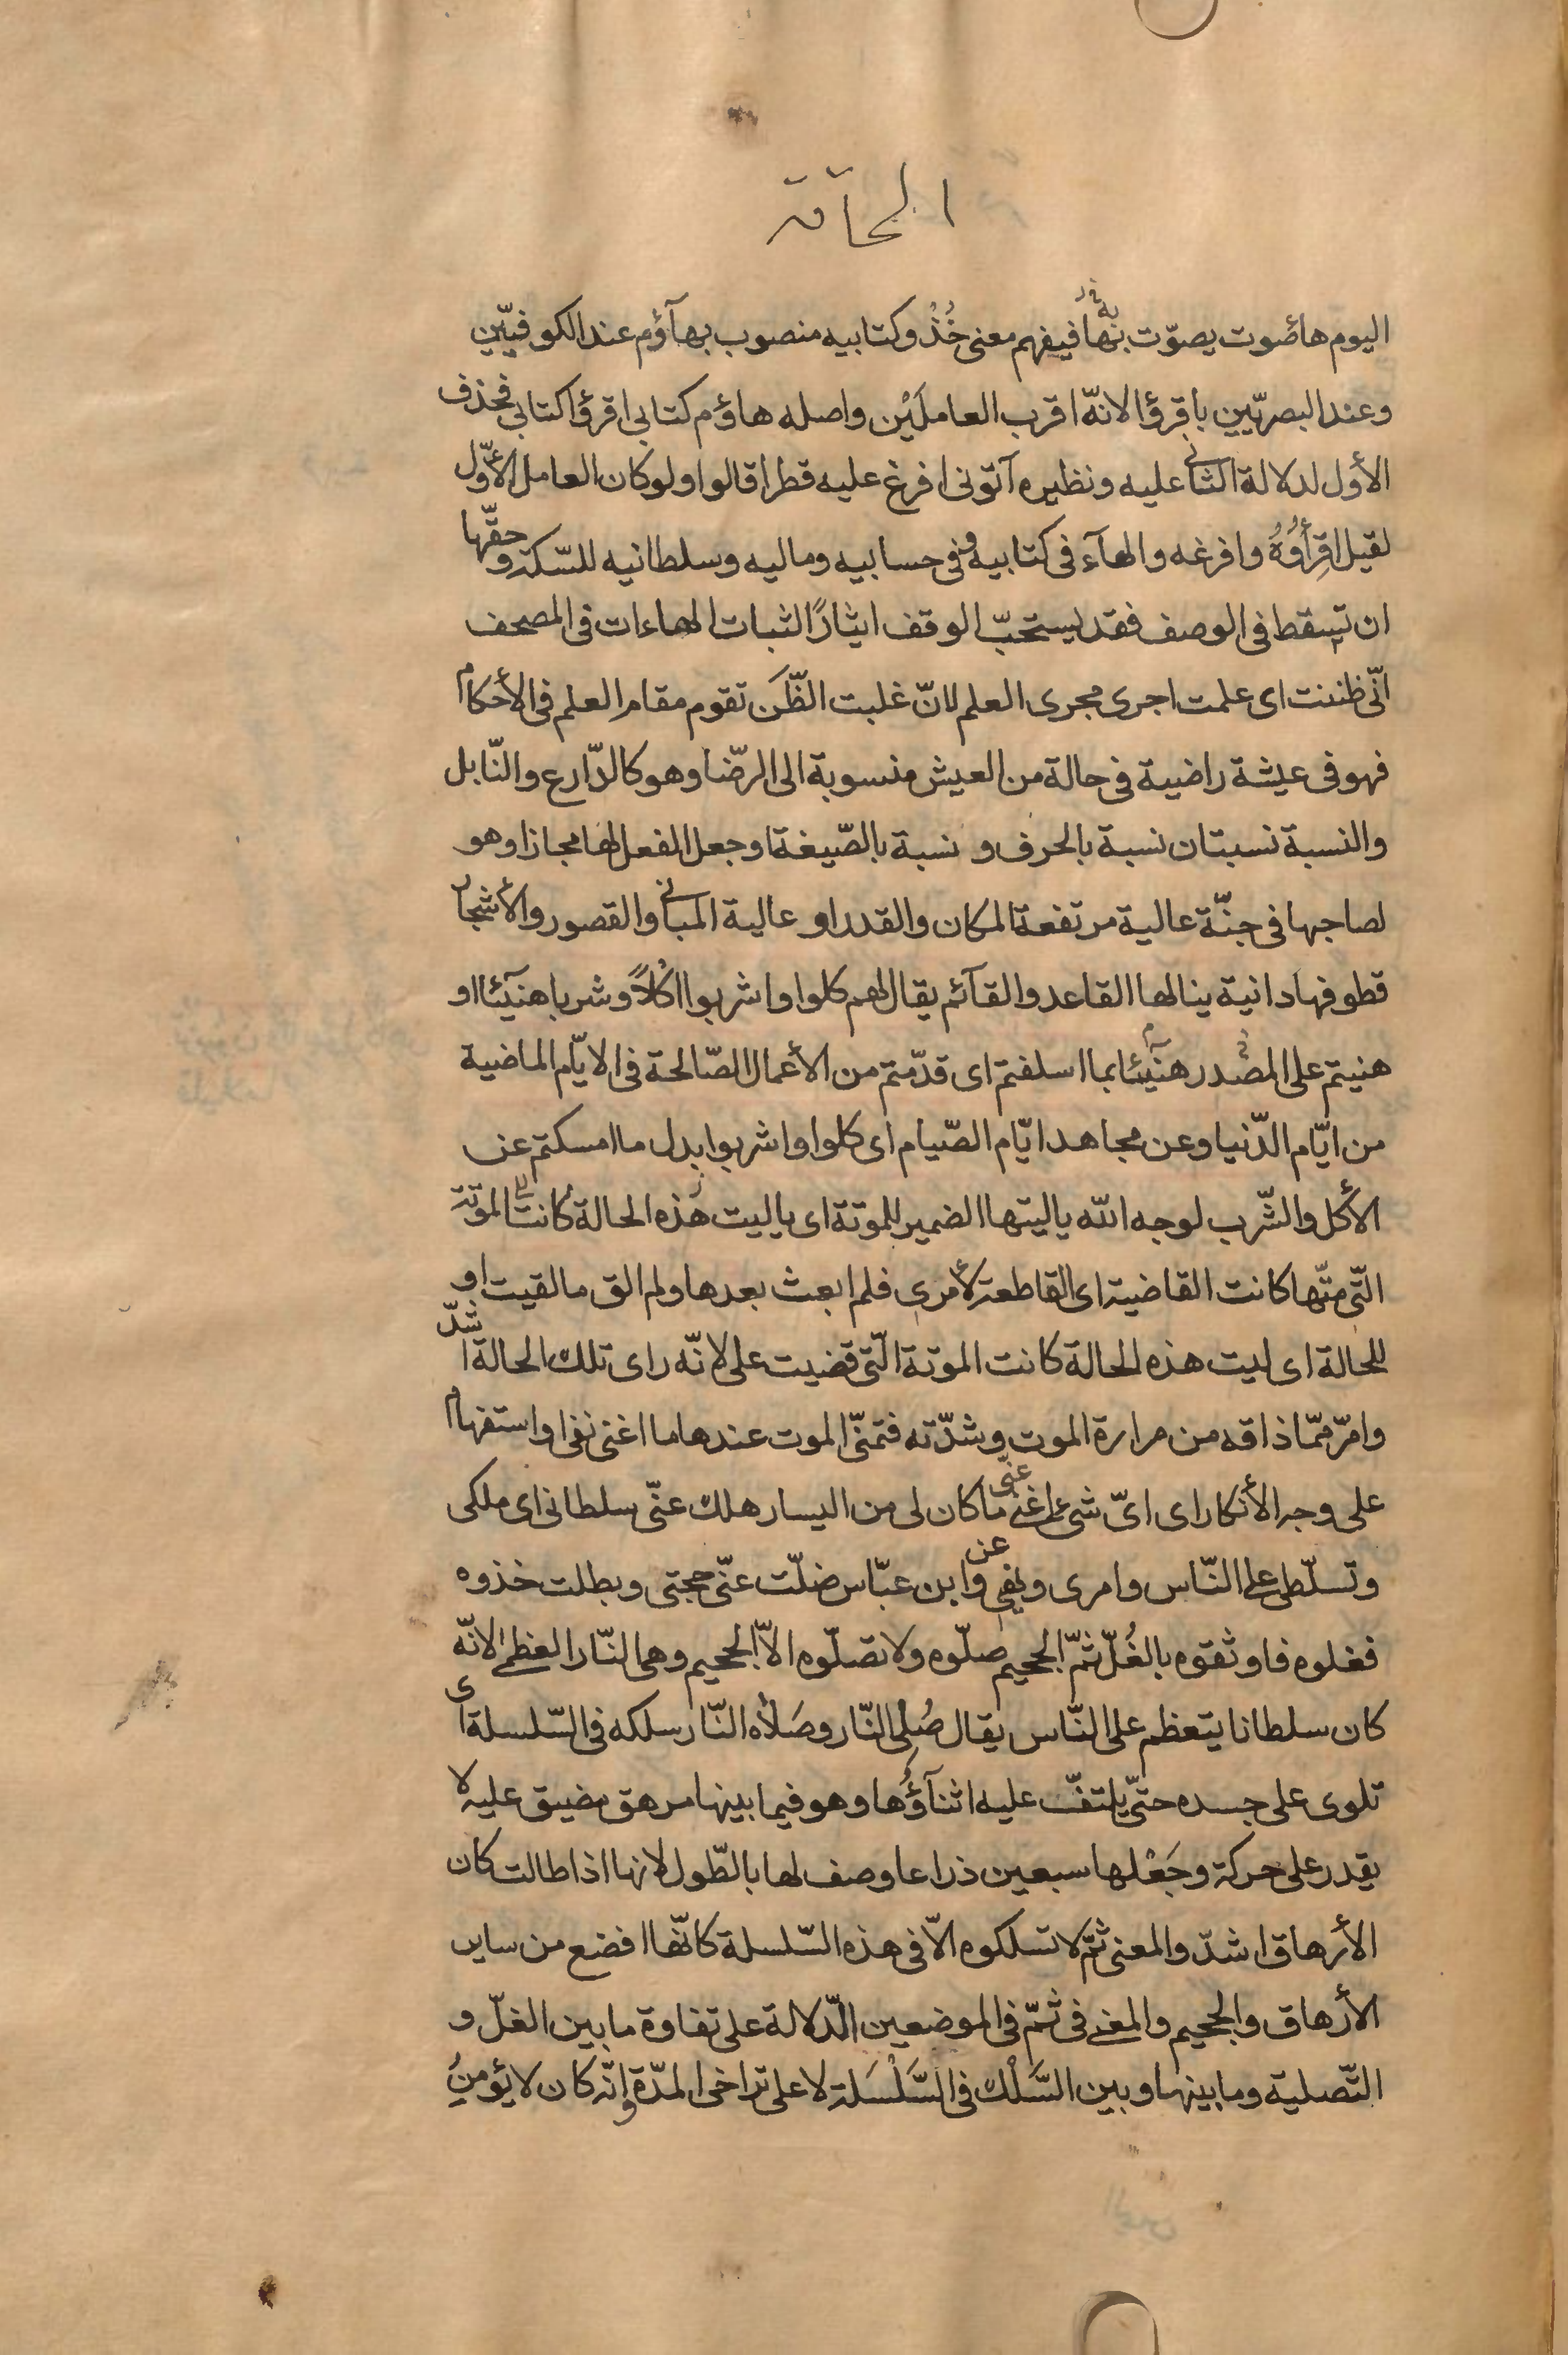 الحاقة
اليوم هاصوت يصوّت بها فيفهم معنى خُذْ وكتابيه منصوب بهآؤم عند الكوفيّين
وعند البصريّين باقرؤا لانّه اقرب العاملَيْن واصله هاؤم كتابى اقرؤا كتابى فحذف
الأول لدلالة الثانى عليه ونظيره آتونى افرغ عليه قطرا قالوا ولو كان العامل الأوّل
لقيل اقرأوُهُ وافرغه والهآء فى كتابيه وفى حسابيه وماليه وسلطانيه للسّكة وحقّها
ان تسقط فى الوصف فقد يستحبّ الوقف ايثارًا لثبات الهاءات فى المصحف
انّى ظننت اى علمت اجرى مجرى العلم لانّ غلبت الظّن تقوم مقام العلم فى الأحكام
فهو فى عيشة راضية فى حالة من العيش منسوبة الى الرّضا وهو كالدّارع والنّابل
والنسبة نسبتان نسبة بالحرف و نسبة بالصّيغة او جعل الفعل لها مجازا وهو
لصاحبها فى جنّة عالية مرتفعة المكان والقدر او عالية المبانى والقصور والأشجار
قطوفها دانية ينالها القاعد والقآئم يقال لهم كلوا واشربوا اكْلاً وشربا هنيئا او
هنيتم على المصدر هنيئا بما اسلفتم اى قدّمتم من الأعمال الصّالحة فى الايّام الماضية
من ايّام الدّنيا وعن مجاهد ايّام الصّيام اى كلوا واشربوا بدل ما امسكتم عن
الأكل والشّرب لوجه الله ياليتها الضمير للموتة اى ياليت هذه الحالة كانت الموتة
الّتى متّها كانت القاضية اى القاطعة لأمرى فلم ابعث بعدها ولم الق ما لقيت او
للحالة اى ليت هذه الحالة كانت الموتة الّتى قضيت على لانّه راى تلك الحالة اشدّ
وامرّ ممّا ذاقه من مرارة الموت وشدّته فتمنّى الموت عندها ما اغنى نفى او استفهام
على وجه الأنكار اى اىّ شىء اغنى عنّى ما كان لى من اليسار هلك عنّى سلطانى اى ملكى
وتسلّطى على النّاس وامرى ونهى وعن ابن عبّاس ضلّت عنّى حجتى وبطلت خذوه
فغلوه فاوثقوه بالغُلّ ثمّ الجحيم صلّوه ولا تصلّوه الاّ الجحيم وهى النّار العظمى لانّه
كان سلطانا يتعظم على النّاس يقال صُلِىَ النّار وصَلاه النّار سلكه فى السّلسلة اى
تلوى على جسده حتّى يلتفّ عليه اثنآؤُها وهو فيما بينها مرهق مضيق عليه لا
يقدر على حركة وجَعْلها سبعين ذراعا وصف لها بالطّول لانها اذا طالت كان
الأرهاق اشدّ والمعنى ثمّ لا تسلكوه الاّ فى هذه السّلسلة كانّها افضع من ساير
الأرهاق والجحيم والمعنى فى ثمّ فى الموضعين الدّلالة على تفاوة ما بين الغلّ و
التّصلية وما بينها وبين السَّلْك فى السَّلْسَلة لا على تراخى المدّة وانّه كان لا يؤمنُ